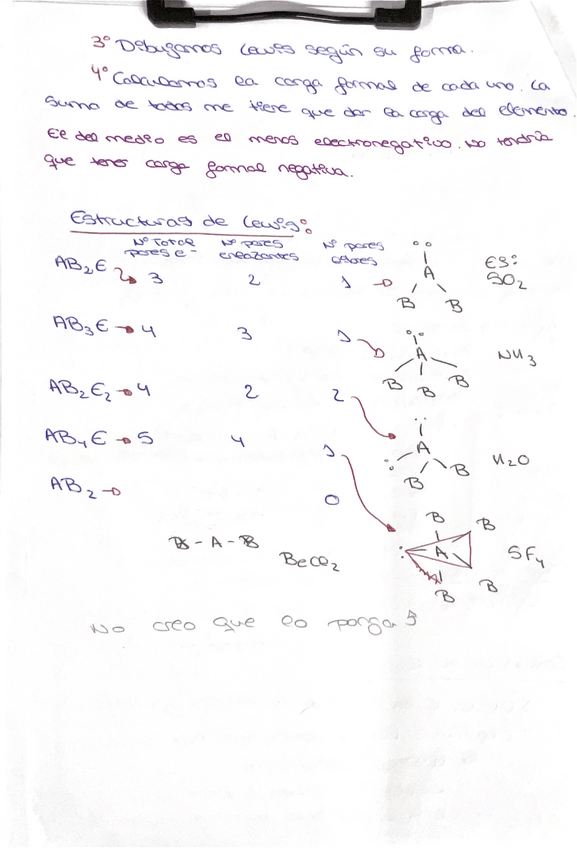 3º Dibujamos Lewis según su forma.
4º Calculamos la carga formal de cada uno. La
suma de todos me tiene que dar la carga del elemento.
El del medio es el menos electronegativo. No tendría
que tener carga formal negativa.
Estructuras de Lewis:
Nº total pares e- Nº pares enlazantes Nº pares libres
AB2E 3 2 1 A B B Ej: SO2
AB3E 4 3 1 A B B B NH3
AB2E2 4 2 2 A B B H2O
AB4E 5 4 1 B B A B B SF4
AB2 0
B - A - B BeCl2
No creo que lo ponga